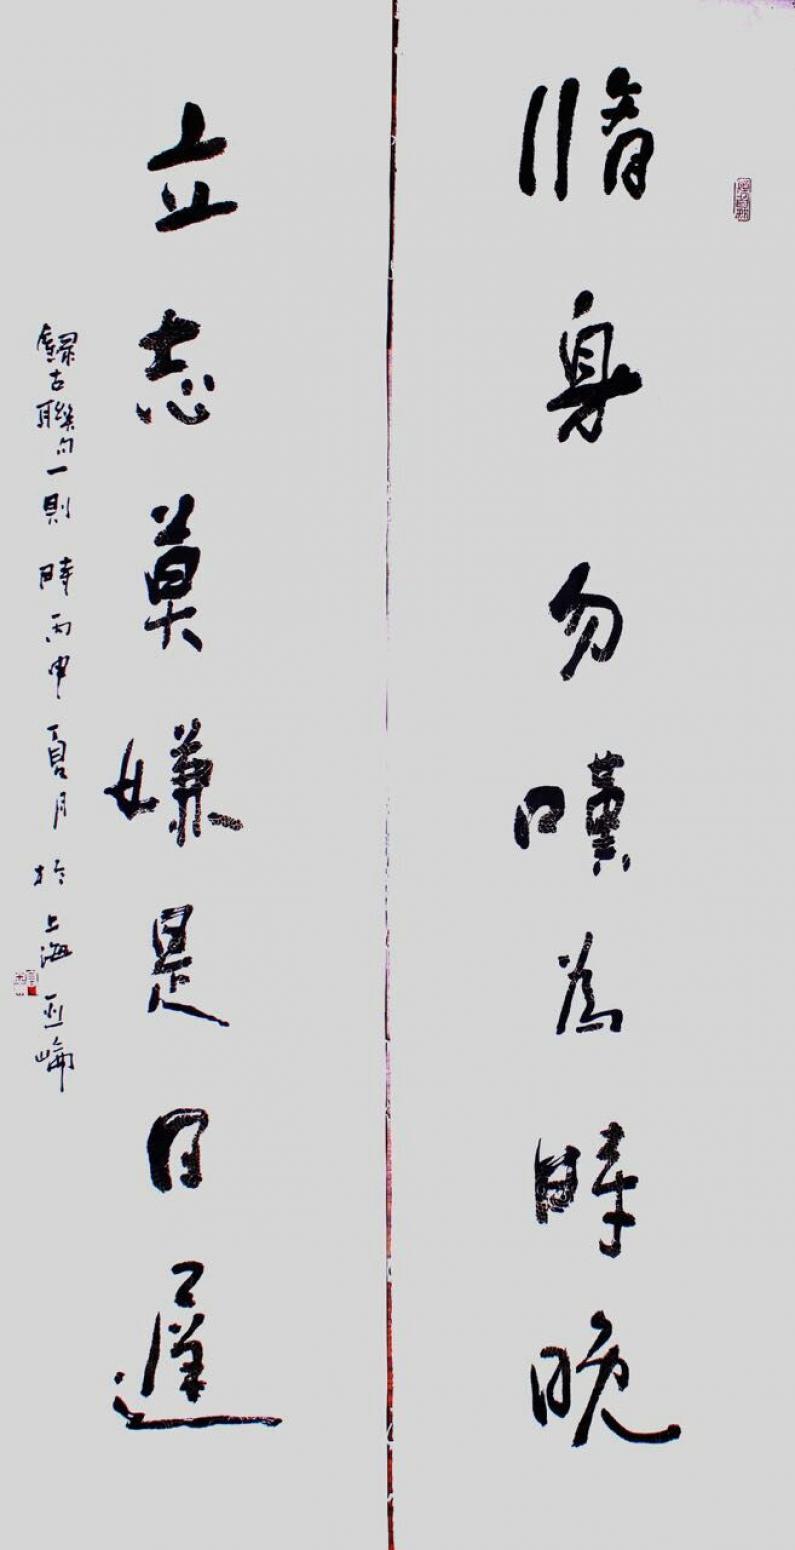 脩身勿嘆為時晚
立志莫嫌是日遲
錄古聯句一則 時丙申夏月於上海